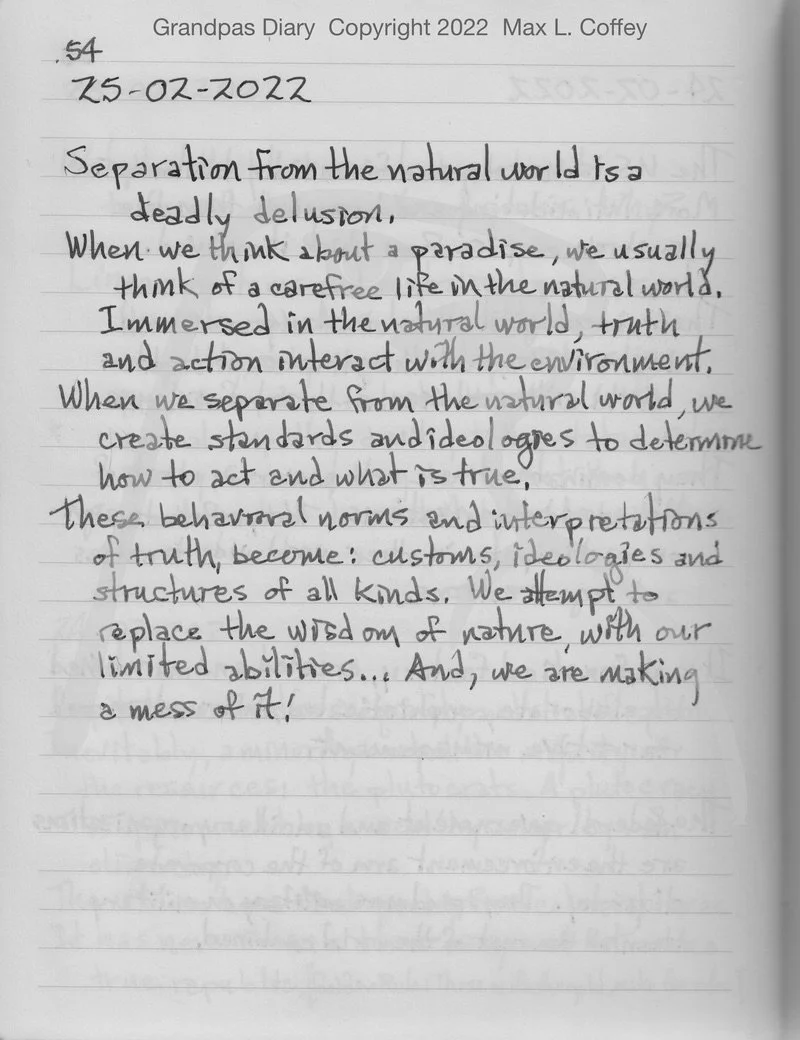 Grandpas Diary Copyright 2022 Max L. Coffey
.54
25-02-2022
Separation from the natural world is a
deadly delusion.
When we think about a paradise, we usually
think of a carefree life in the natural world.
Immersed in the natural world, truth
and action interact with the environment.
When we separate from the natural world, we
create standards and ideologies to determine
how to act and what is true.
These behavioral norms and interpretations
of truth, become: customs, ideologies and
structures of all kinds. We attempt to
replace the wisdom of nature, with our
limited abilities... And, we are making
a mess of it!